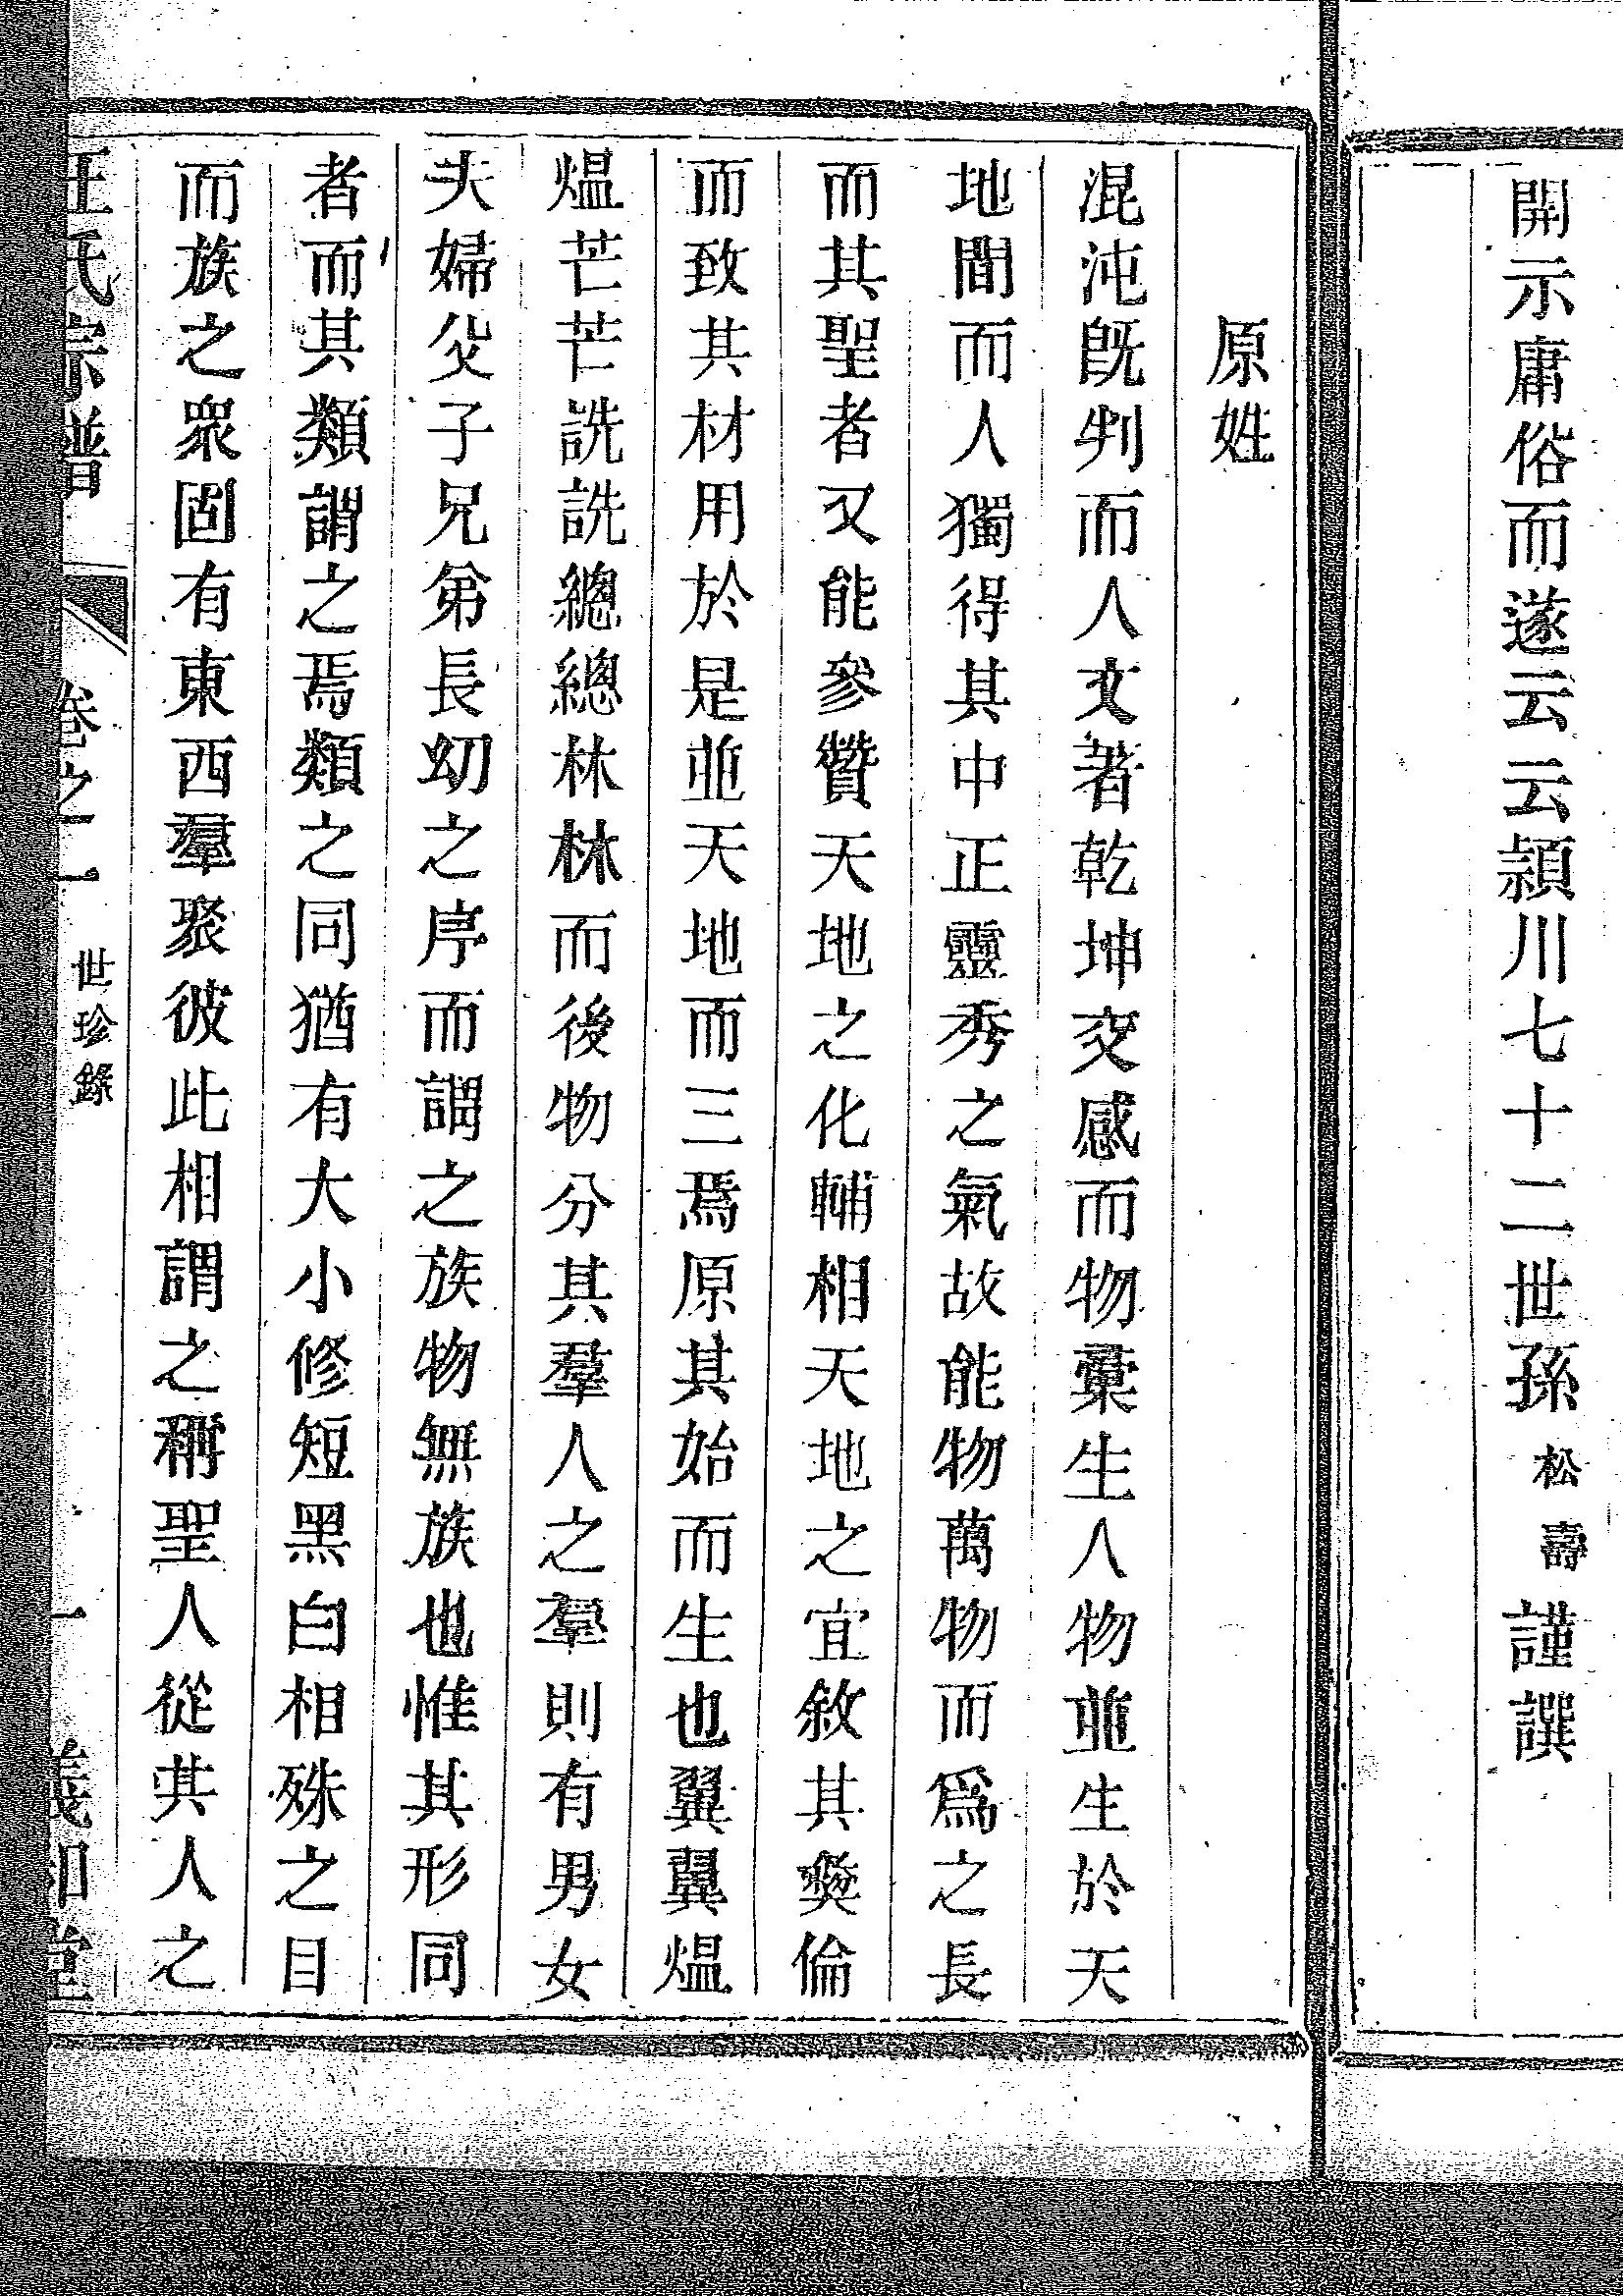 開示庸俗而遂云云潁川七十二世孫松壽謹譔
原姓
混沌旣判而人文著乾坤交感而物彙生人物並生於天
地間而人獨得其中正靈秀之氣故能物萬物而爲之長
而其聖者又能參贊天地之化輔相天地之宜敘其彝倫
而致其材用於是並天地而三焉原其始而生也翼翼熅
熅芒芒詵詵總總林林而後物分其羣人之羣則有男女
夫婦父子兄弟長幼之序而謂之族物無族也惟其形同
者而其類謂之焉類之同猶有大小修短黑白相殊之目
而族之衆固有東西羣聚彼此相謂之稱聖人從其人之
王氏宗譜 卷之一 世珍錄 一 義和堂